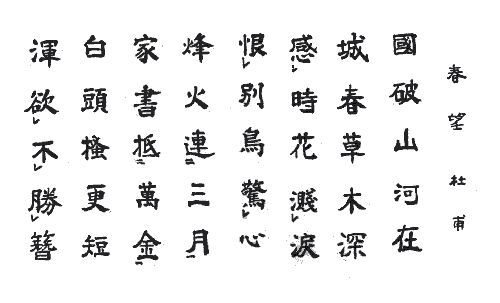 春望 杜甫
國破山河在
城春草木深
感時花濺淚
恨別鳥驚心
烽火連三月
家書抵萬金
白頭搔更短
渾欲不勝簪